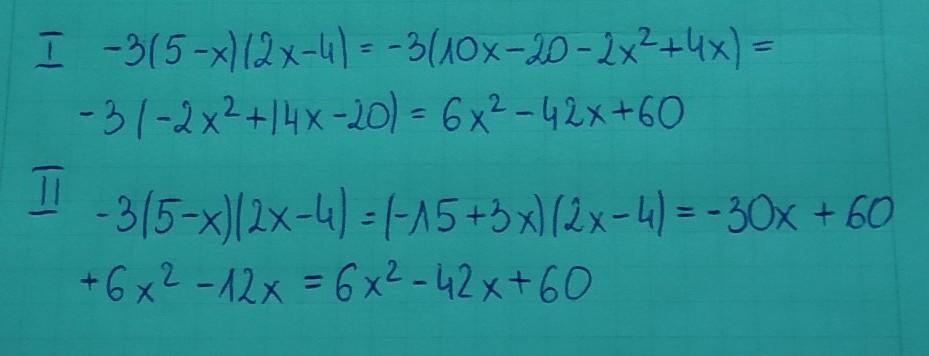 I -3(5-x)(2x-4) = -3(10x-20-2x²+4x) =
-3(-2x²+14x-20) = 6x²-42x+60
II -3(5-x)(2x-4) = (-15+3x)(2x-4) = -30x+60
+6x²-12x = 6x²-42x+60